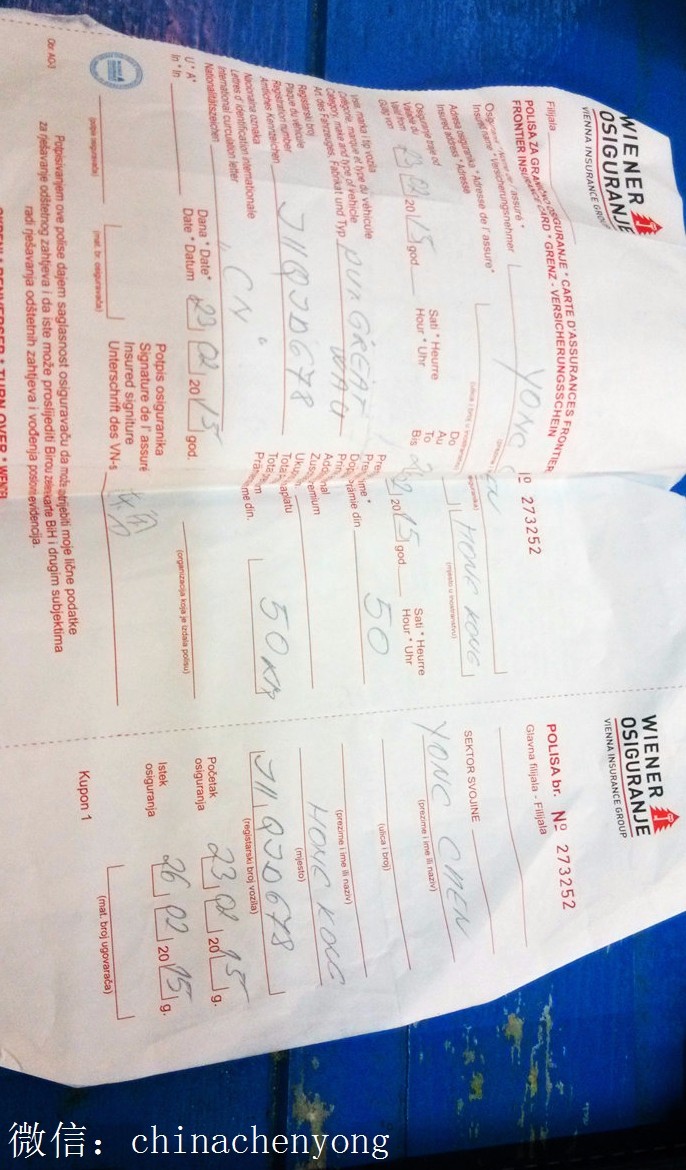 WIENER
OSIGURANJE
VIENNA INSURANCE GROUP
Filijala
POLISA ZA GRANIČNO OSIGURANJE * CARTE D'ASSURANCES FRONTIER
FRONTIER INSURANCE CARD * GRENZ - VERSICHERUNGSSCHEIN
Nº 273252
YONG
Insured name * Versicherungsnehmer
Adresa osiguranika * Adresse de l' assure*
Insured address * Adresse
HONG KONG
(mjesto u inostranstvu)
Osiguranje traje od
Valable du
Valid from
Gültig vom
23 02 2015 god.
Sati * Heurre
Hour * Uhr
Do
Au
To
Bis
2015 god.
Sati * Heurre
Hour * Uhr
Vrsta, marka i tip vozila
Categorie, marque et type du véhicule
Category, make and type of vehicle
Art des Fahrzeuges, Fabrikat und Typ
GREAT WALL
50
Registarski broj
Plaque du véhicule
Registration number
Amtliches Kennzeichen
J11QJD678
Nacionalna oznaka
Lettres d' identification internationale
International curculation letter
Nationalitätszeichen
CN
50 KM
U * A*
In * In
Dana * Date*
Date * Datum
23 02 2015 god.
(organizacija koja je izdala polisu)
Potpis osiguranika
Signature de l' assuré
Insured signiture
Unterschrift des VN-s
(potpis osiguravača)
(mat. broj osiguravača)
Obr. AO-3
Potpisivanjem ove polise dajem saglasnost osiguravaču da može upotrijebiti moje lične podatke
za rješavanje odštetnog zahtjeva i da iste može proslijediti Birou zelene karte BiH i drugim subjektima
radi rješavanja odštetnih zahtjeva i vođenja poslovne evidencije.
TURN OVER
WIENER
OSIGURANJE
VIENNA INSURANCE GROUP
POLISA br. Nº 273252
Glavna filijala - Filijala
SEKTOR SVOJINE
YONG CHEN
(prezime i ime ili naziv)
(ulica i broj)
(prezime i ime ili naziv)
HONG KONG
(mjesto)
J11QJD678
(registarski broj vozila)
Početak
osiguranja
23 02 2015 g.
Istek
osiguranja
26 02 2015 g.
(mat. broj ugovarača)
Kupon 1
微信：chinachenyong